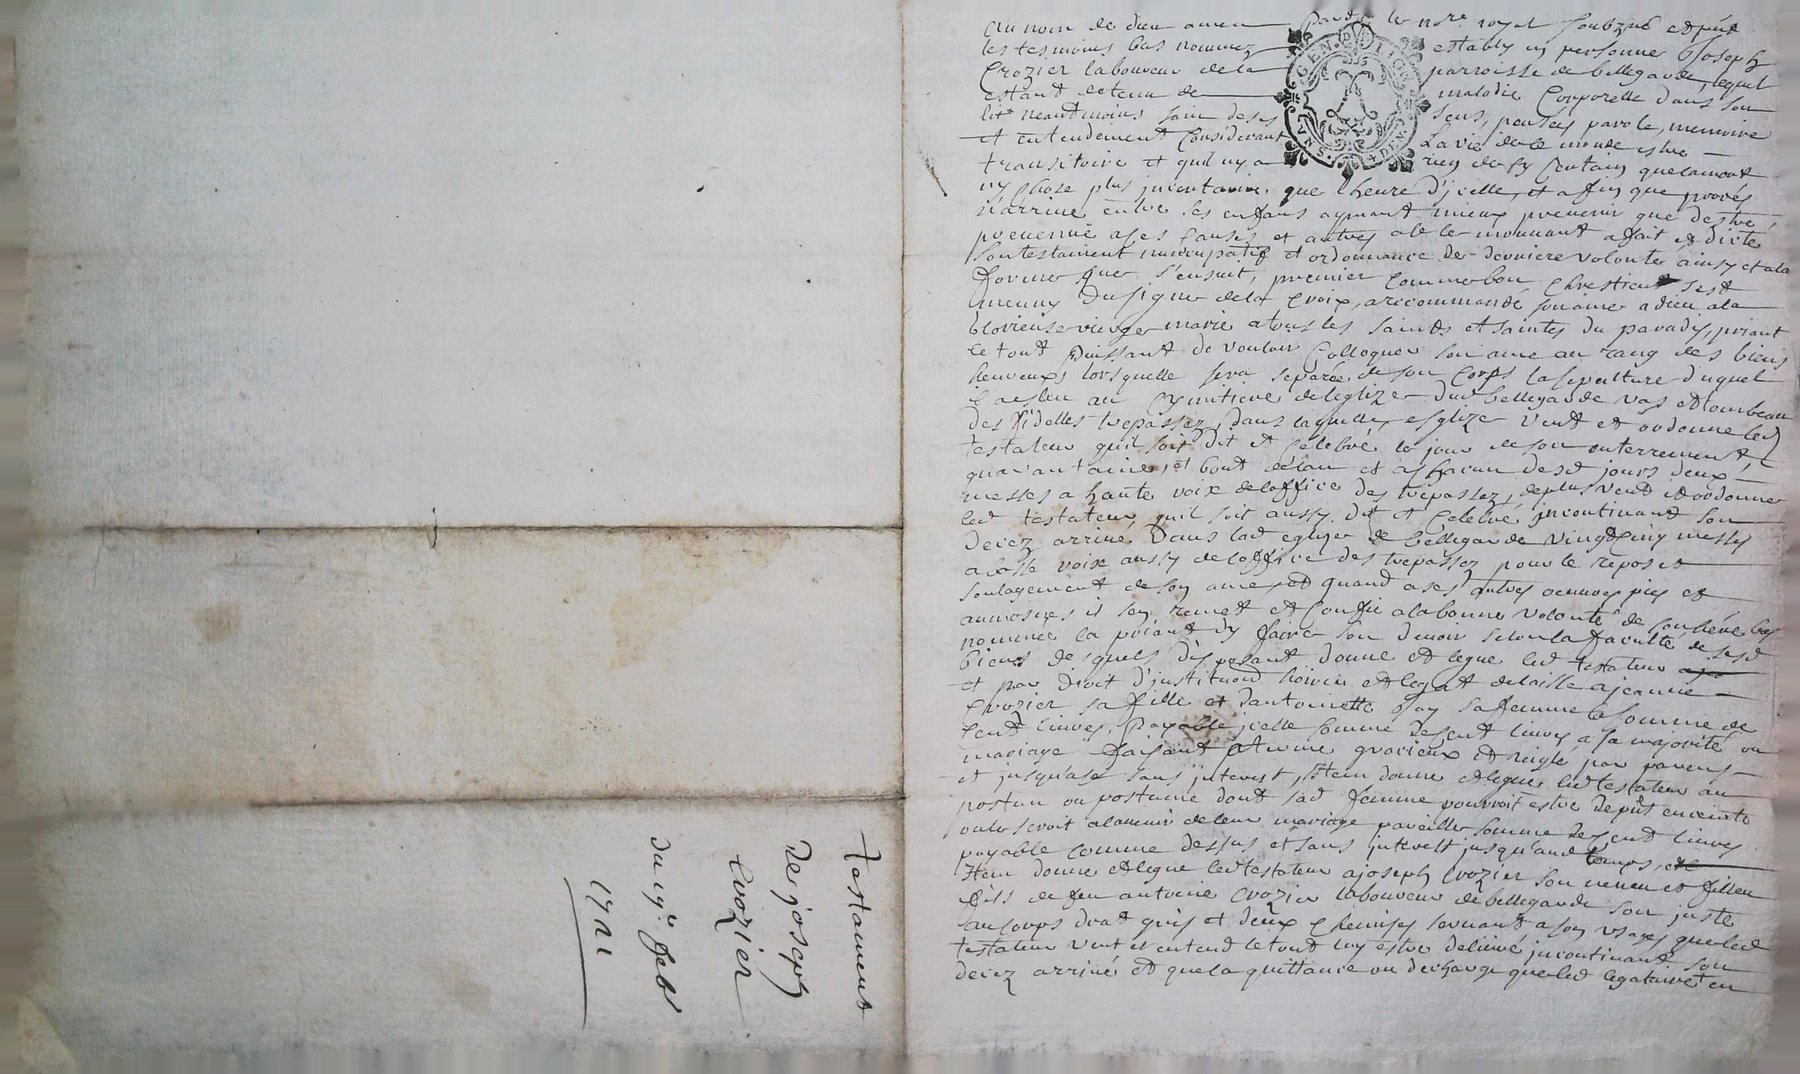 Testament
de joseph
Crozier
du 19e. feb
1721
Au nom de dieu amen pardt le nore royal soubzné et pnt
les tesmoins bas nommez estably en personne Joseph
Crozier laboureur de la parroisse de bellegarde, lequel
estant detenu de maladie Corporelle dans son
lit neantmoins sain de ses sens, pensées parole, memoire
et entendement Considerant La vie de ce monde estre
transitoire et quil ny a rien de sy Certain que la mort
ny chose plus incertaine que lheure d'jcelle, et afin que procés
n'arrive entre ses enfans aymant mieux prevenir que destre
prevenu a ses causes et autres a le mouvant a fait et dicté
son testament nuncupatif et ordonnance de derniere volonté ainsy et a la
forme que s'ensuit, premier comme bon Chrestien s'est
meuny du signe de la Croix, a recommandé son ame a dieu, a la
Glorieuse vierge marie a tous les saints et saintes du paradis, priant
le tout puissant de vouloir Colloquer son ame au rang des biens
heureux lorsquelle sera separée de son Corps la sepulture duquel
il a esleu au Cymitiere de leglize dud bellegarde vas et tombeau
des fidelles trepassez, dans laquelle esglize veut et ordonne led
testateur quil soit dit et Celebré le jour de son enterrement,
quarantaine, et bout delan et a chacun desd jours deux
messes a haute voix de loffice des trepassez, de plus veut et ordonne
led testateur quil soit aussy dit et Celebré jncontinant son
decez arrivé dans lad eglize de bellegarde vingt cinq messes
a basse voix aussy de loffice des trepassez pour le repos et
soulagement de son ame, et quand a ses autres oeuvres pies et
aumosnes il sen remet et Confie a la bonne volonté de son hére bas
nommée la priant dy faire son devoir selon la faculté de sesd
biens desquels disposant donne et legue led testateur
et par droit d'jnstitution hoirie et legat delaisse a jeanne
Crozier sa fille et dantoinette Jay sa femme la somme de
Cent livres, payable jcelle somme de cent livres a sa majorité ou
mariage faisant gracieux et reiglé par parens
et jusqu'a ce sans jnterest, Item donne et legue led testateur au
postun ou postume dont sad femme pourroit estre depnt enceinte
ou le seroit a ladvenir de leur mariage pareille somme de cent livres
payable comme dessus et sans jnterest jusqu'aud temps,
Item donne et legue led testateur a joseph Crozier son neveu et filleu
fils de feu antoine Crozier laboureur de bellegarde son juste
au corps drat gris et deux chemises servant a son usage que led
testateur veut et entend le tout luy estre delivré jncontinant son
decez arrivé et que la quittance ou decharge que led legataire en